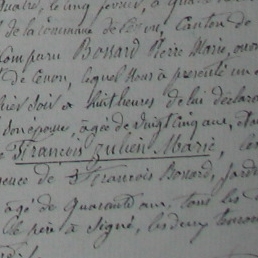 quatre, le cinq février, à quatre
de la Commune de Canton de
Comparu Bossard Pierre Marie,
de Cenon, lequel nous a présenté un
hier soir à huit heures de lui déclara
son épouse, agée de vingt cinq ans,
François Julien Marie, les
ence de François Bossard,
agé de quarante ans, tous les
le père a signé, les deux temoins